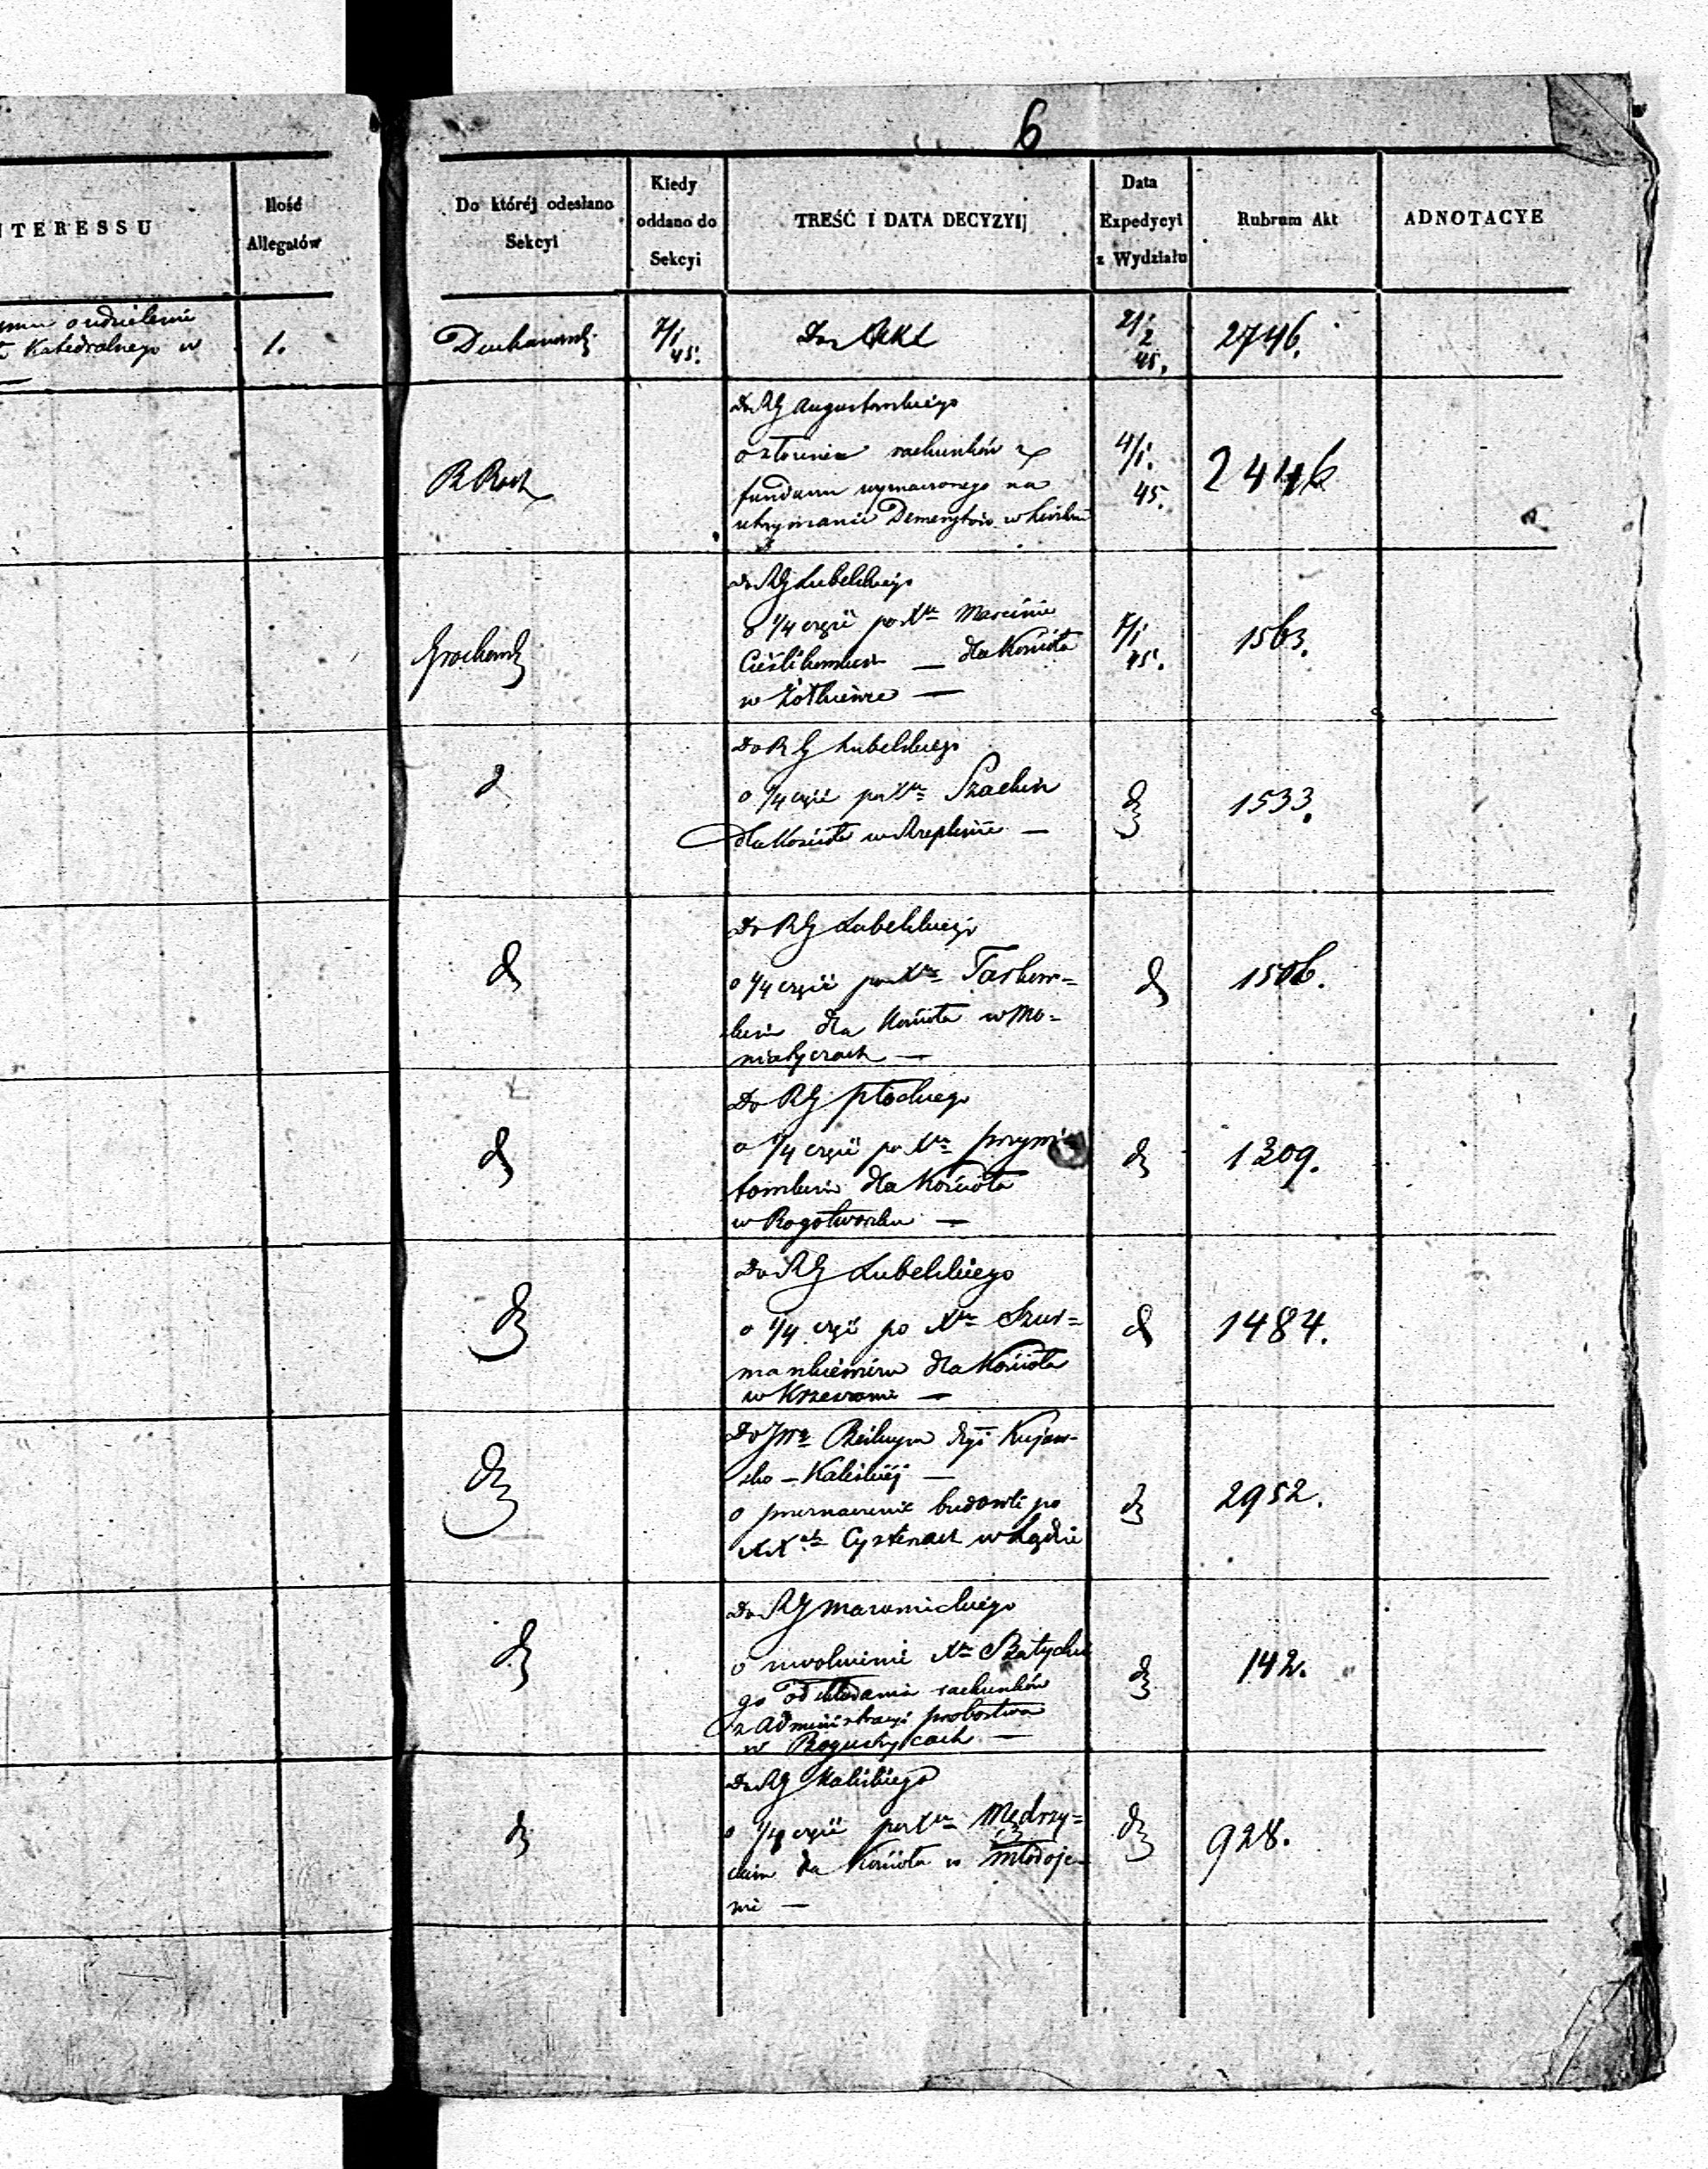 6
NTERESSU
Ilość
Allegatów
Do któréj odesłano
Sekcyi
Kiedy
oddano do
Sekcyi
TREŚĆ I DATA DECYZYIJ
Data
Expedycyi
z Wydziału
Rubrum Akt
ADNOTACYE
o udzielenie
Katedralnego w
1.
7/1
45.
Do Akt
21/2
45.
2746.
Do RG Augustowskiego
o złożenie rachunków z
funduszu wyznaczonego na
utrzymanie Demerytów w
4/1.
45.
2446
Do RG Lubelskiego
o 1/4 część po Xu Marcinie
dla Kościoła
w Żółkiewce —
7/1
45.
1563.
d
Do RG Lubelskiego
o 1/4 część po Xu
dla Kościoła w —
d
1533.
d
Do RG Lubelskiego
o 1/4 część po Xu Taskow=
skim dla Kościoła w Mo=
niatyczach —
d
1506.
d
Do RG Płockiego
o 1/4 część po Xu
dla Kościoła
w Rogotworsku —
d
1309.
d
Do RG Lubelskiego
o 1/4 część po Xu Szur=
mankiewiczu dla Kościoła
w —
d
1484.
d
Do Dyi Kujaw-
sko - Kaliskiej —
o przeznaczenie budowli po
XXch Cystersach w Lądzie
d
2952.
d
Do RG Mazowieckiego
o uwolnienie Xa
go od składania rachunków
z Administracyi probostwa
w Boguszycach —
d
142.
d
Do RG Kaliskiego
o 1/4 część po Xu Mędrzy=
ckim dla Kościoła w Młodoje=
wie —
d
928.